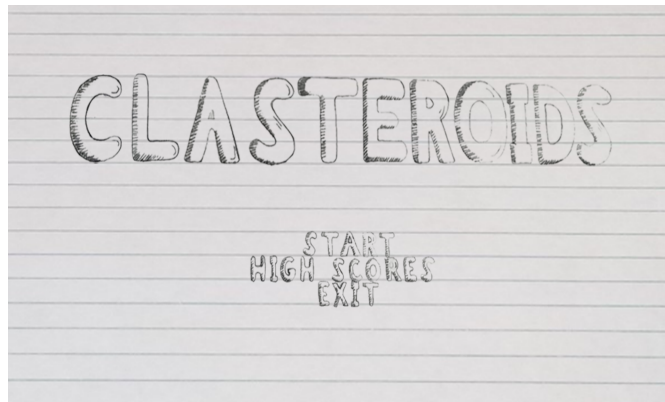 CLASTEROIDS
START
HIGH SCORES
EXIT